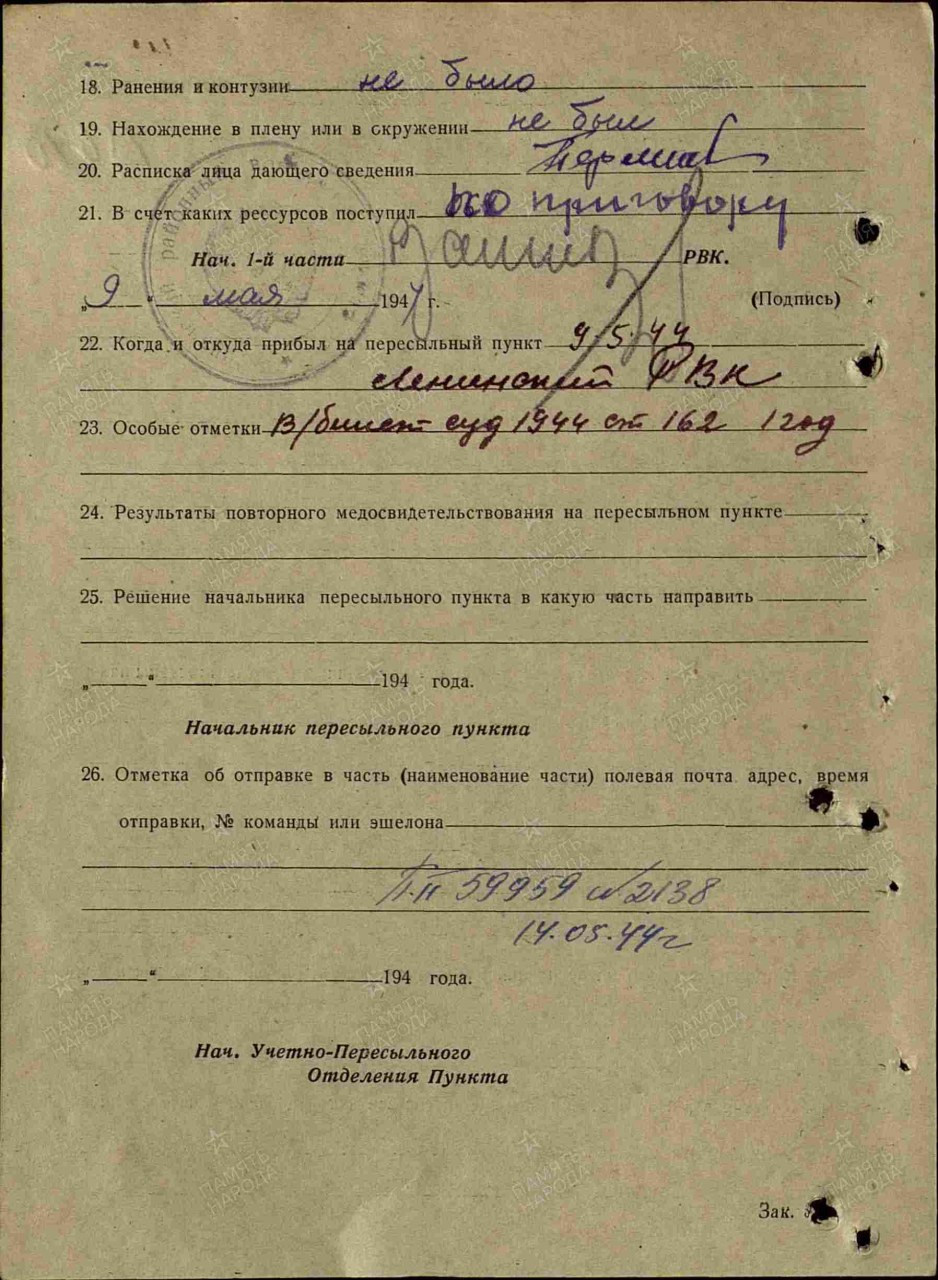 18. Ранения и контузии не было
19. Нахождение в плену или в окружении не был
20. Расписка лица дающего сведения
21. В счет каких рессурсов поступил по приговору
Нач. 1-й части РВК.
„9“ мая 1944 г. (Подпись)
22. Когда и откуда прибыл на пересыльный пункт 9/5.44
Ленинский РВК
23. Особые отметки В/билет суд 1944 ст 162 1 год
24. Результаты повторного медосвидетельствования на пересыльном пункте
25. Решение начальника пересыльного пункта в какую часть направить
„ “ 194 года.
Начальник пересыльного пункта
26. Отметка об отправке в часть (наименование части) полевая почта адрес, время
отправки, № команды или эшелона
П.П 59959 №2138
14.05.44г
„ “ 194 года.
Нач. Учетно-Пересыльного
Отделения Пункта
Зак.
ПАМЯТЬ НАРОДА